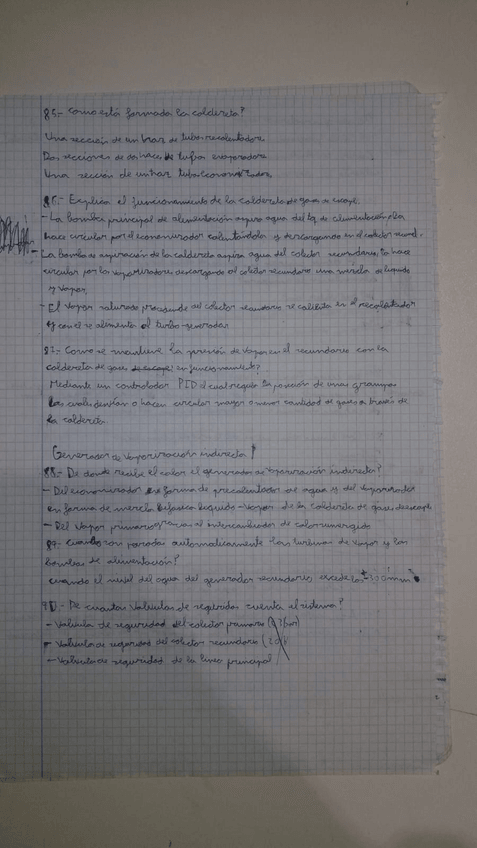 85.- Como está formada la caldereta?
Una sección de un haz de tubo recalentadora
Dos secciones de dos haces de tubo evaporadora
Una sección de un haz tubo economizadora
86.- Explica el funcionamiento de la caldereta de gases de escape.
- La bomba principal de alimentación aspira agua del tq de alimentación y la
hace circular por el economizador calentándola y descargando en el colector secund.
- La bomba de aspiración de la caldereta aspira agua del colector secundario, la hace
circular por los vaporizadores, descargando al colector secundario una mezcla de líquido
y vapor.
- El vapor saturado procedente del colector secundario se calienta en el recalentador
y con el se alimenta el turbo-generador
87.- Como se mantiene la presión de vapor en el secundario con la
caldereta de gases de escape en funcionamiento?
Mediante un controlador PID el cual regula la posición de unas
las cuales desvían o hacen circular mayor o menor cantidad de gases a través de
la caldereta.
Generador de vaporización indirecta
88.- De donde recibe el calor el generador de vaporización indirecta?
- Del economizador en forma de precalentador de agua y del vaporizador
en forma de mezcla bifásica líquido-vapor de la caldereta de gases de escape
- Del vapor primario gracias al intercambiador de calor sumergido
89.- Cuando son paradas automáticamente las turbinas de vapor y las
bombas de alimentación?
cuando el nivel del agua del generador secundario excede los
90.- De cuantas valvulas de seguridad cuenta el sistema?
- Valvula de seguridad del colector primario
- Valvula de seguridad del colector secundario
- Valvula de seguridad de la linea principal